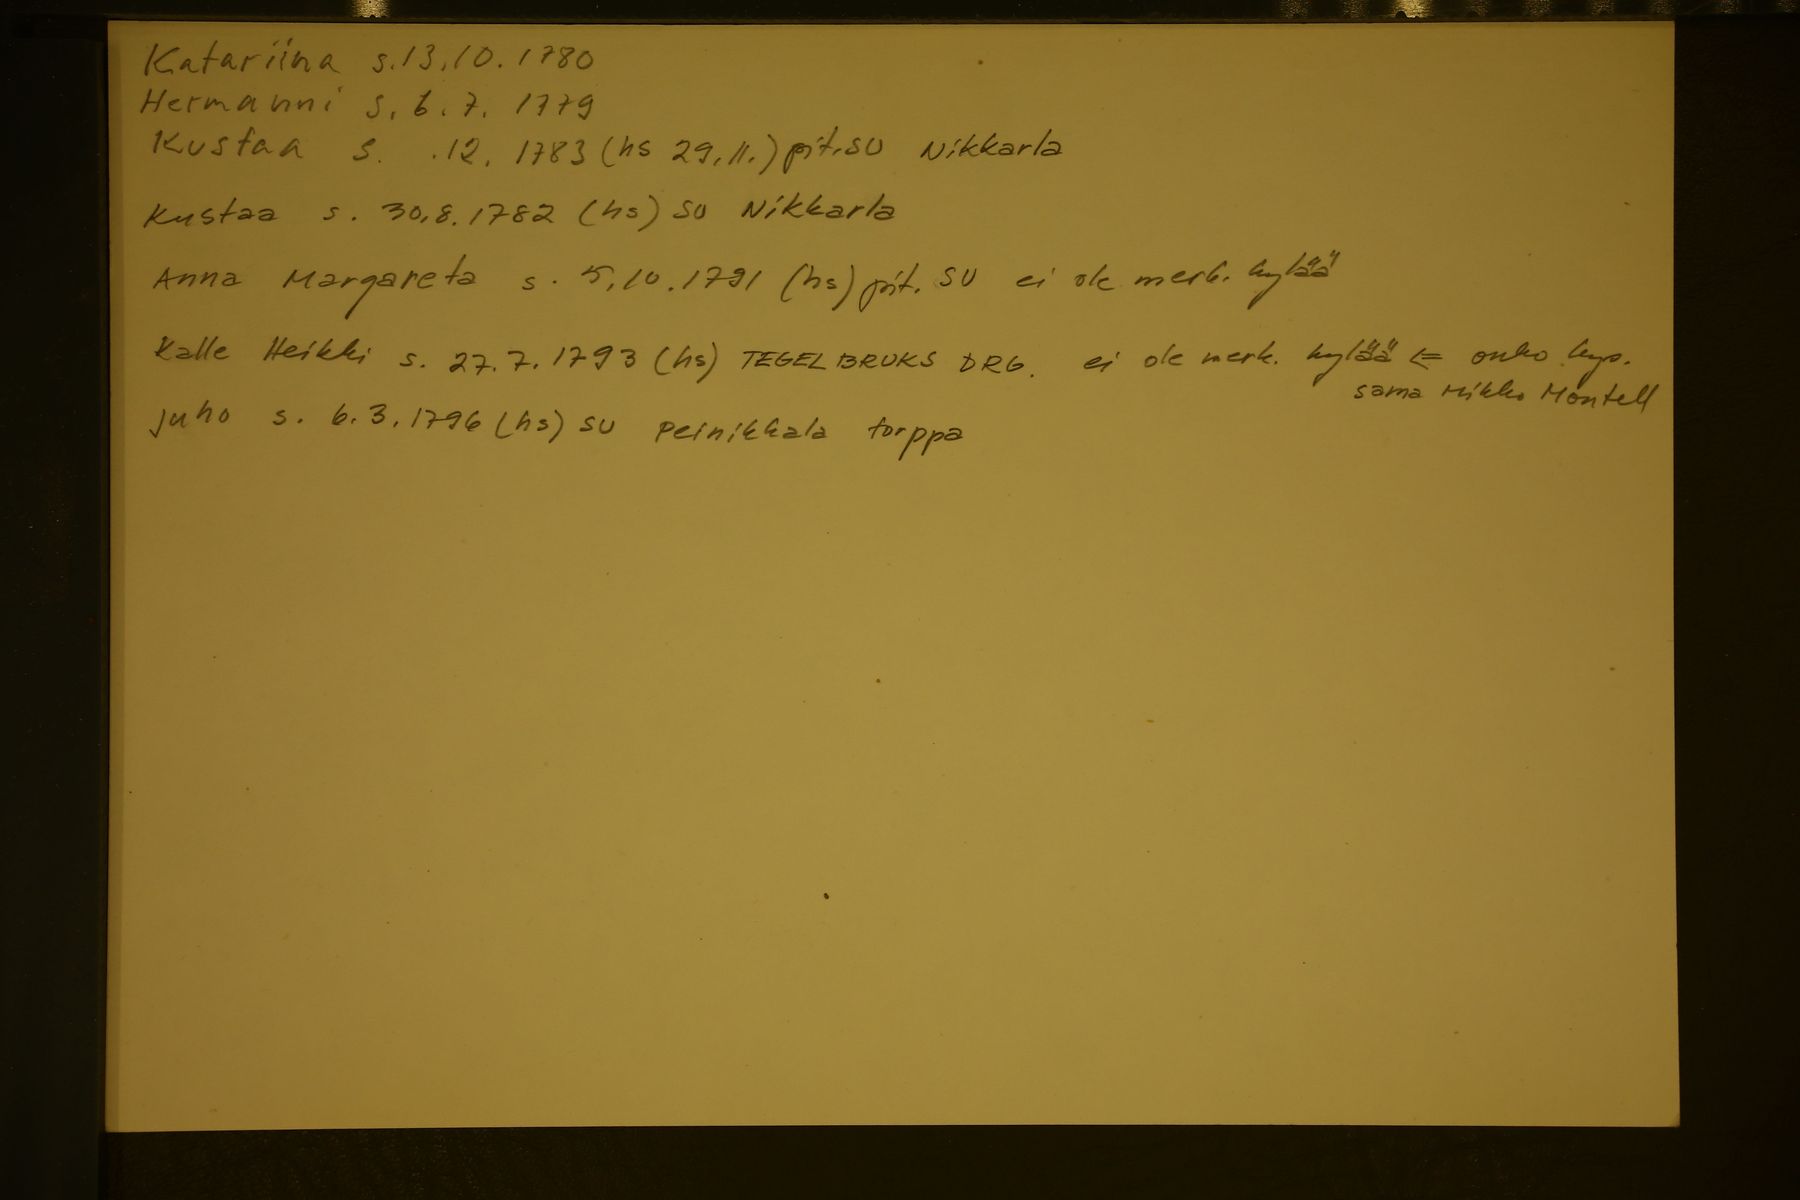 Katariina s. 13.10.1780
Hermanni s. 6.7.1779
Kustaa s. .12.1783 (hs 29.11.) pit. SU Nikkarla
Kustaa s. 30.8.1782 (hs) SU Nikkarla
Anna Margareta s. 5.10.1791 (hs) pit. SU ei ole merk. kylää
Kalle Heikki s. 27.7.1793 (hs) TEGELBRUKS DRG. ei ole merk. kylää <= onko kys.
sama Mikko Montell
Juho s. 6.3.1796 (hs) SU Peinikkala torppa